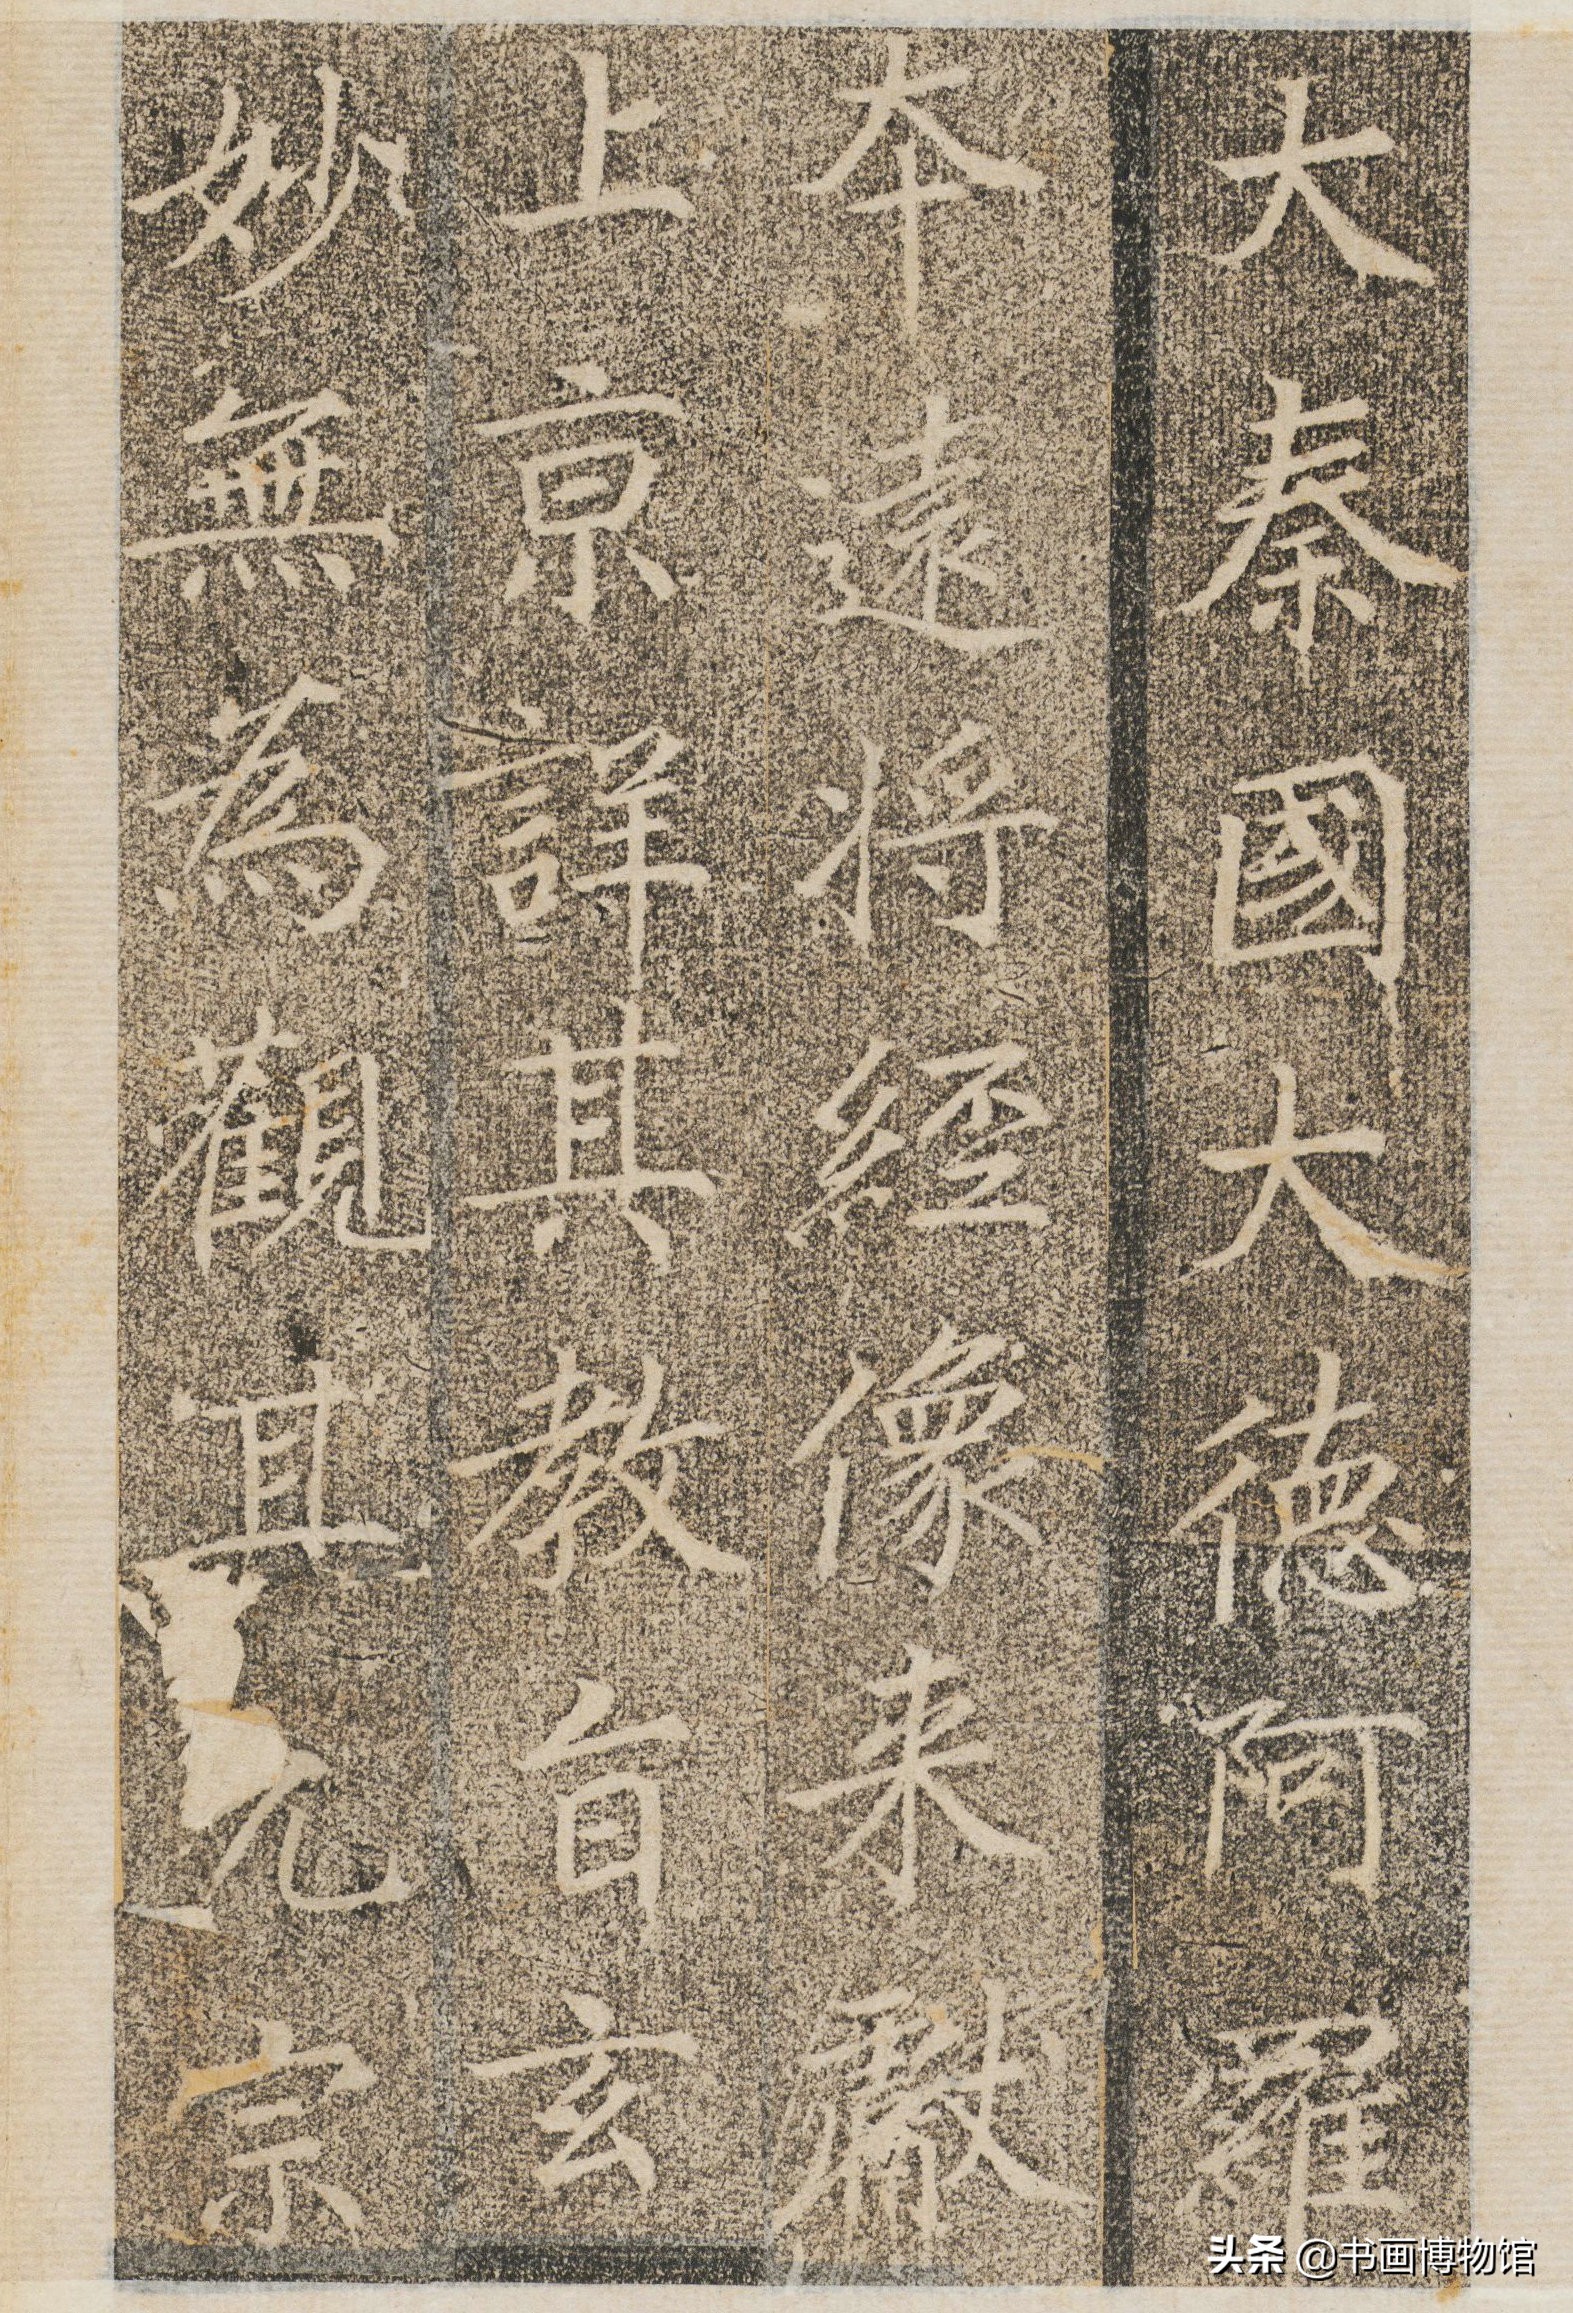 大秦國大德阿羅
本遠将經像来獻
上京詳其教旨玄
妙無為觀其元宗
头条 @书画博物馆